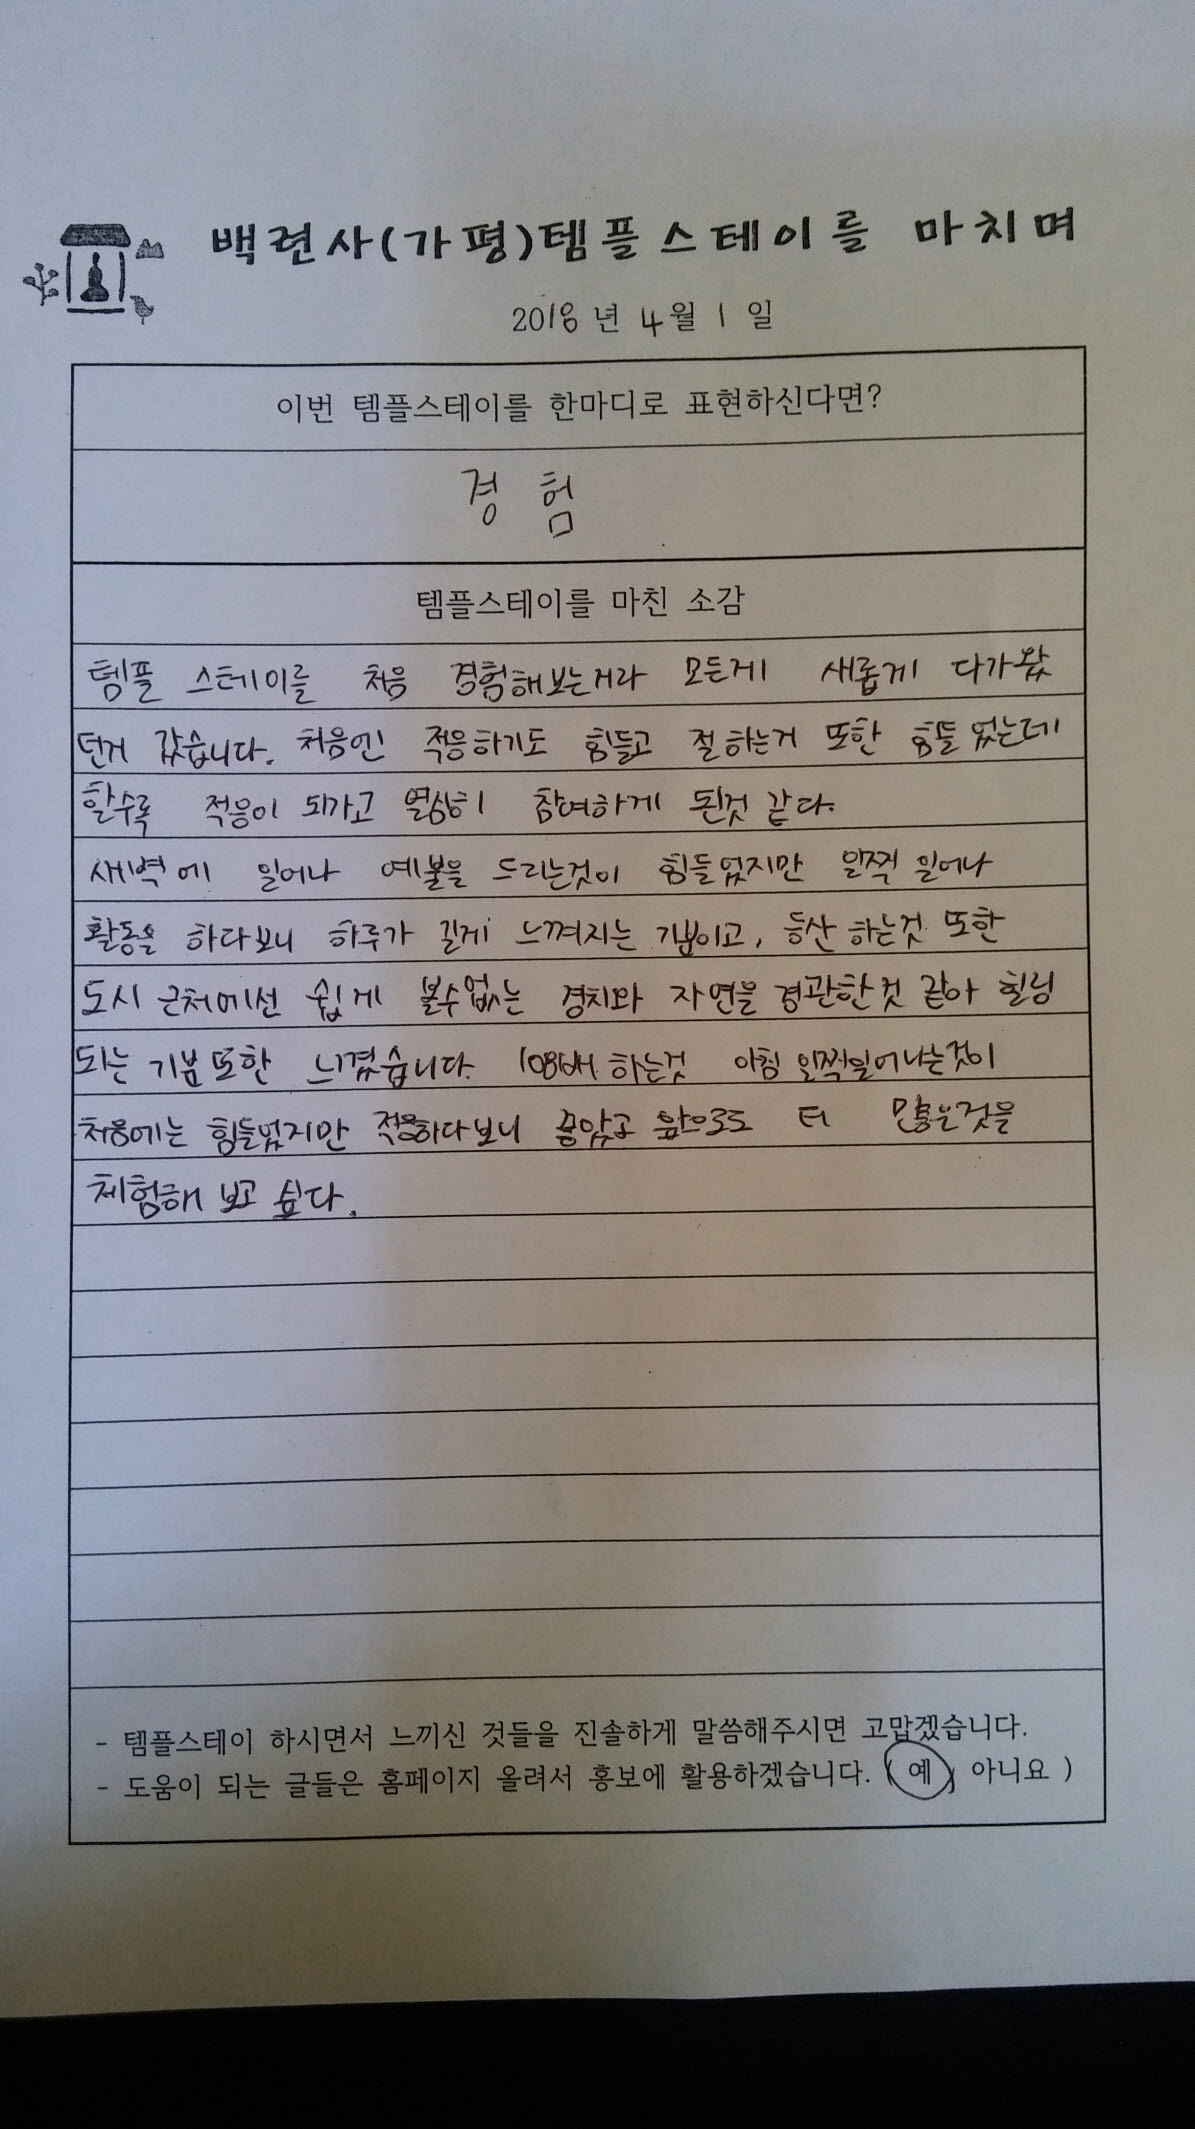 백련사(가평)템플스테이를 마치며
2018 년 4 월 1 일
이번 템플스테이를 한마디로 표현하신다면?
경 험
템플스테이를 마친 소감
템플 스테이를 처음 경험해보는거라 모든게 새롭게 다가왔
던거 같습니다. 처음엔 적응하기도 힘들고 절하는거 또한 힘들었는데
할수록 적응이 되가고 열심히 참여하게 된것 같다.
새벽에 일어나 예불을 드리는것이 힘들었지만 일찍 일어나
활동을 하다보니 하루가 길게 느껴지는 기분이고, 등산 하는것 또한
도시 근처에선 쉽게 볼수없는 경치와 자연을 경관한것 같아 힐링
되는 기분 또한 느꼈습니다. 108배 하는것 아침 일찍일어나는것이
처음에는 힘들었지만 적응하다보니 좋았고 앞으로도 더 많은것을
체험해 보고 싶다.
- 템플스테이 하시면서 느끼신 것들을 진솔하게 말씀해주시면 고맙겠습니다.
- 도움이 되는 글들은 홈페이지 올려서 홍보에 활용하겠습니다. ( 예, 아니요 )